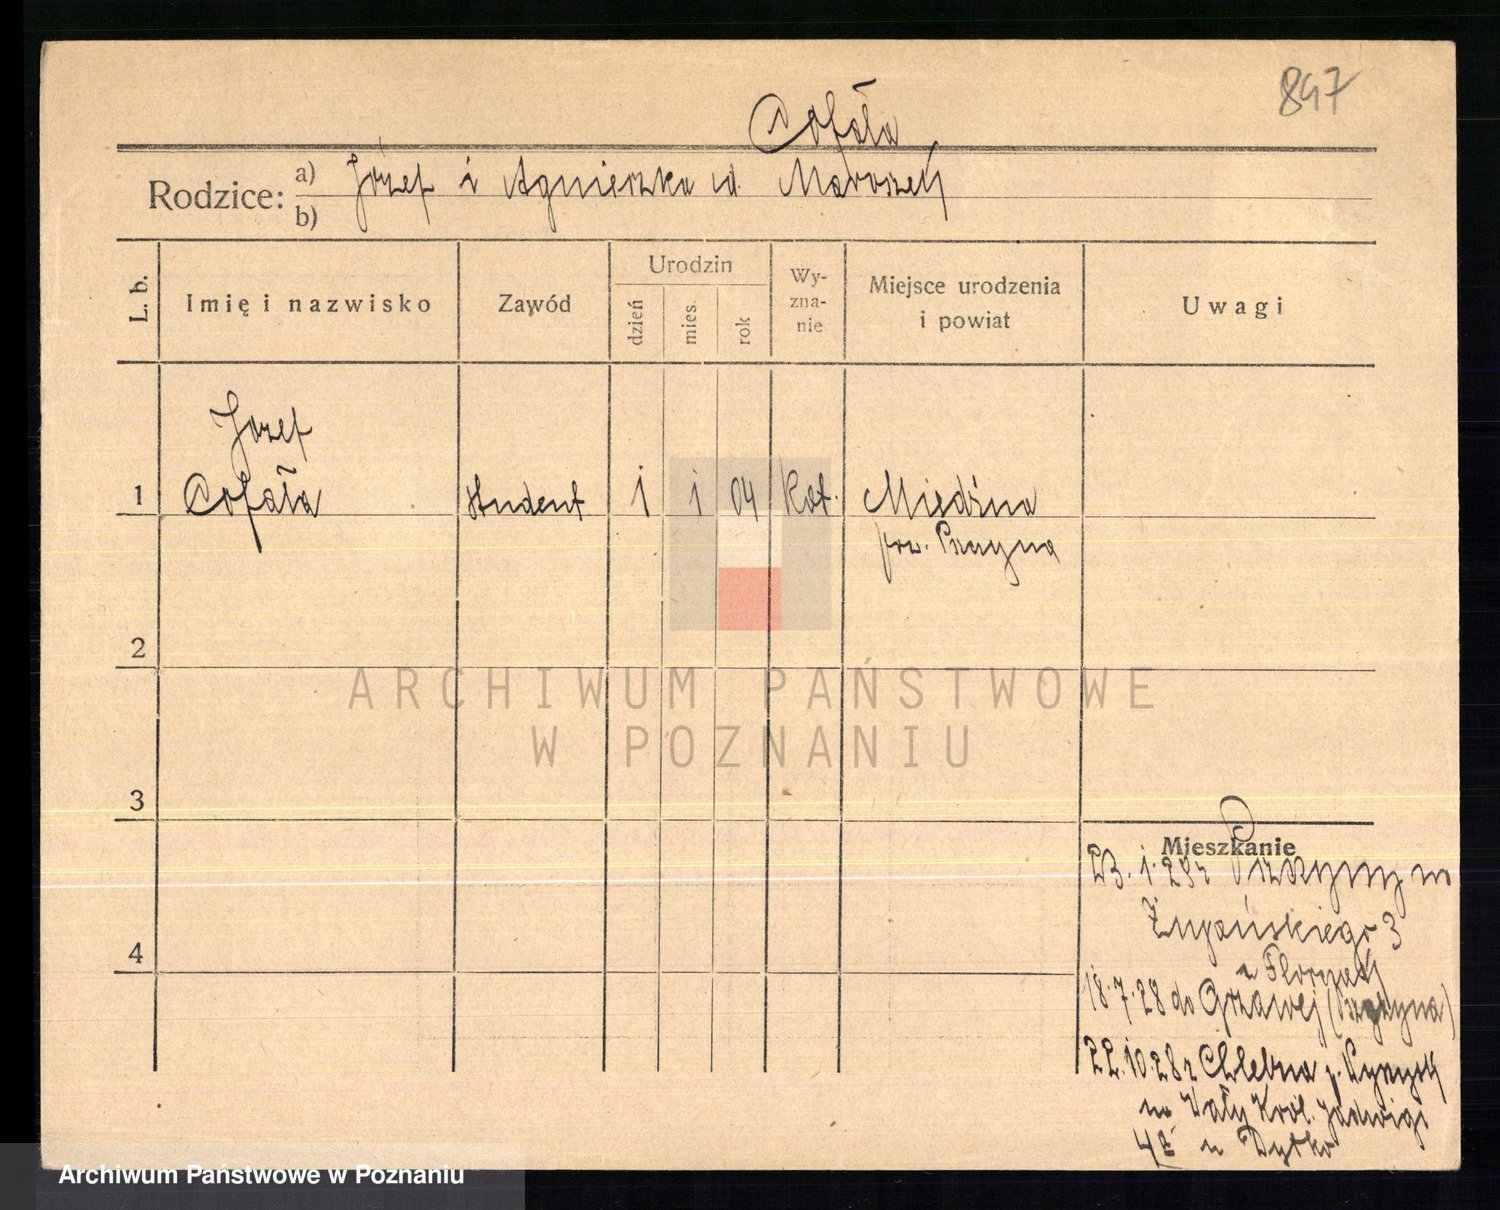 847
Cofała
Rodzice: a) Józef i Agnieszka ur. Maroszek
b)
L. b.
Imię i nazwisko
Zawód
Urodzin
dzień
mies.
rok
Wy-
zna-
nie
Miejsce urodzenia
i powiat
Uwagi
Józef
1 Cofała student 1 1 04 kat. Miedźna
pow. Pszczyna
2
ARCHIWUM PAŃSTWOWE
W POZNANIU
3
Mieszkanie
23.1.28 z Pszczyny na
Żupańskiego 3
4
u
18.7.28 do Grzawej (Pszczyna)
22.10.28 z Chlebna p.
na Wały Król. Jadwigi
4a u Dytko
Archiwum Państwowe w Poznaniu